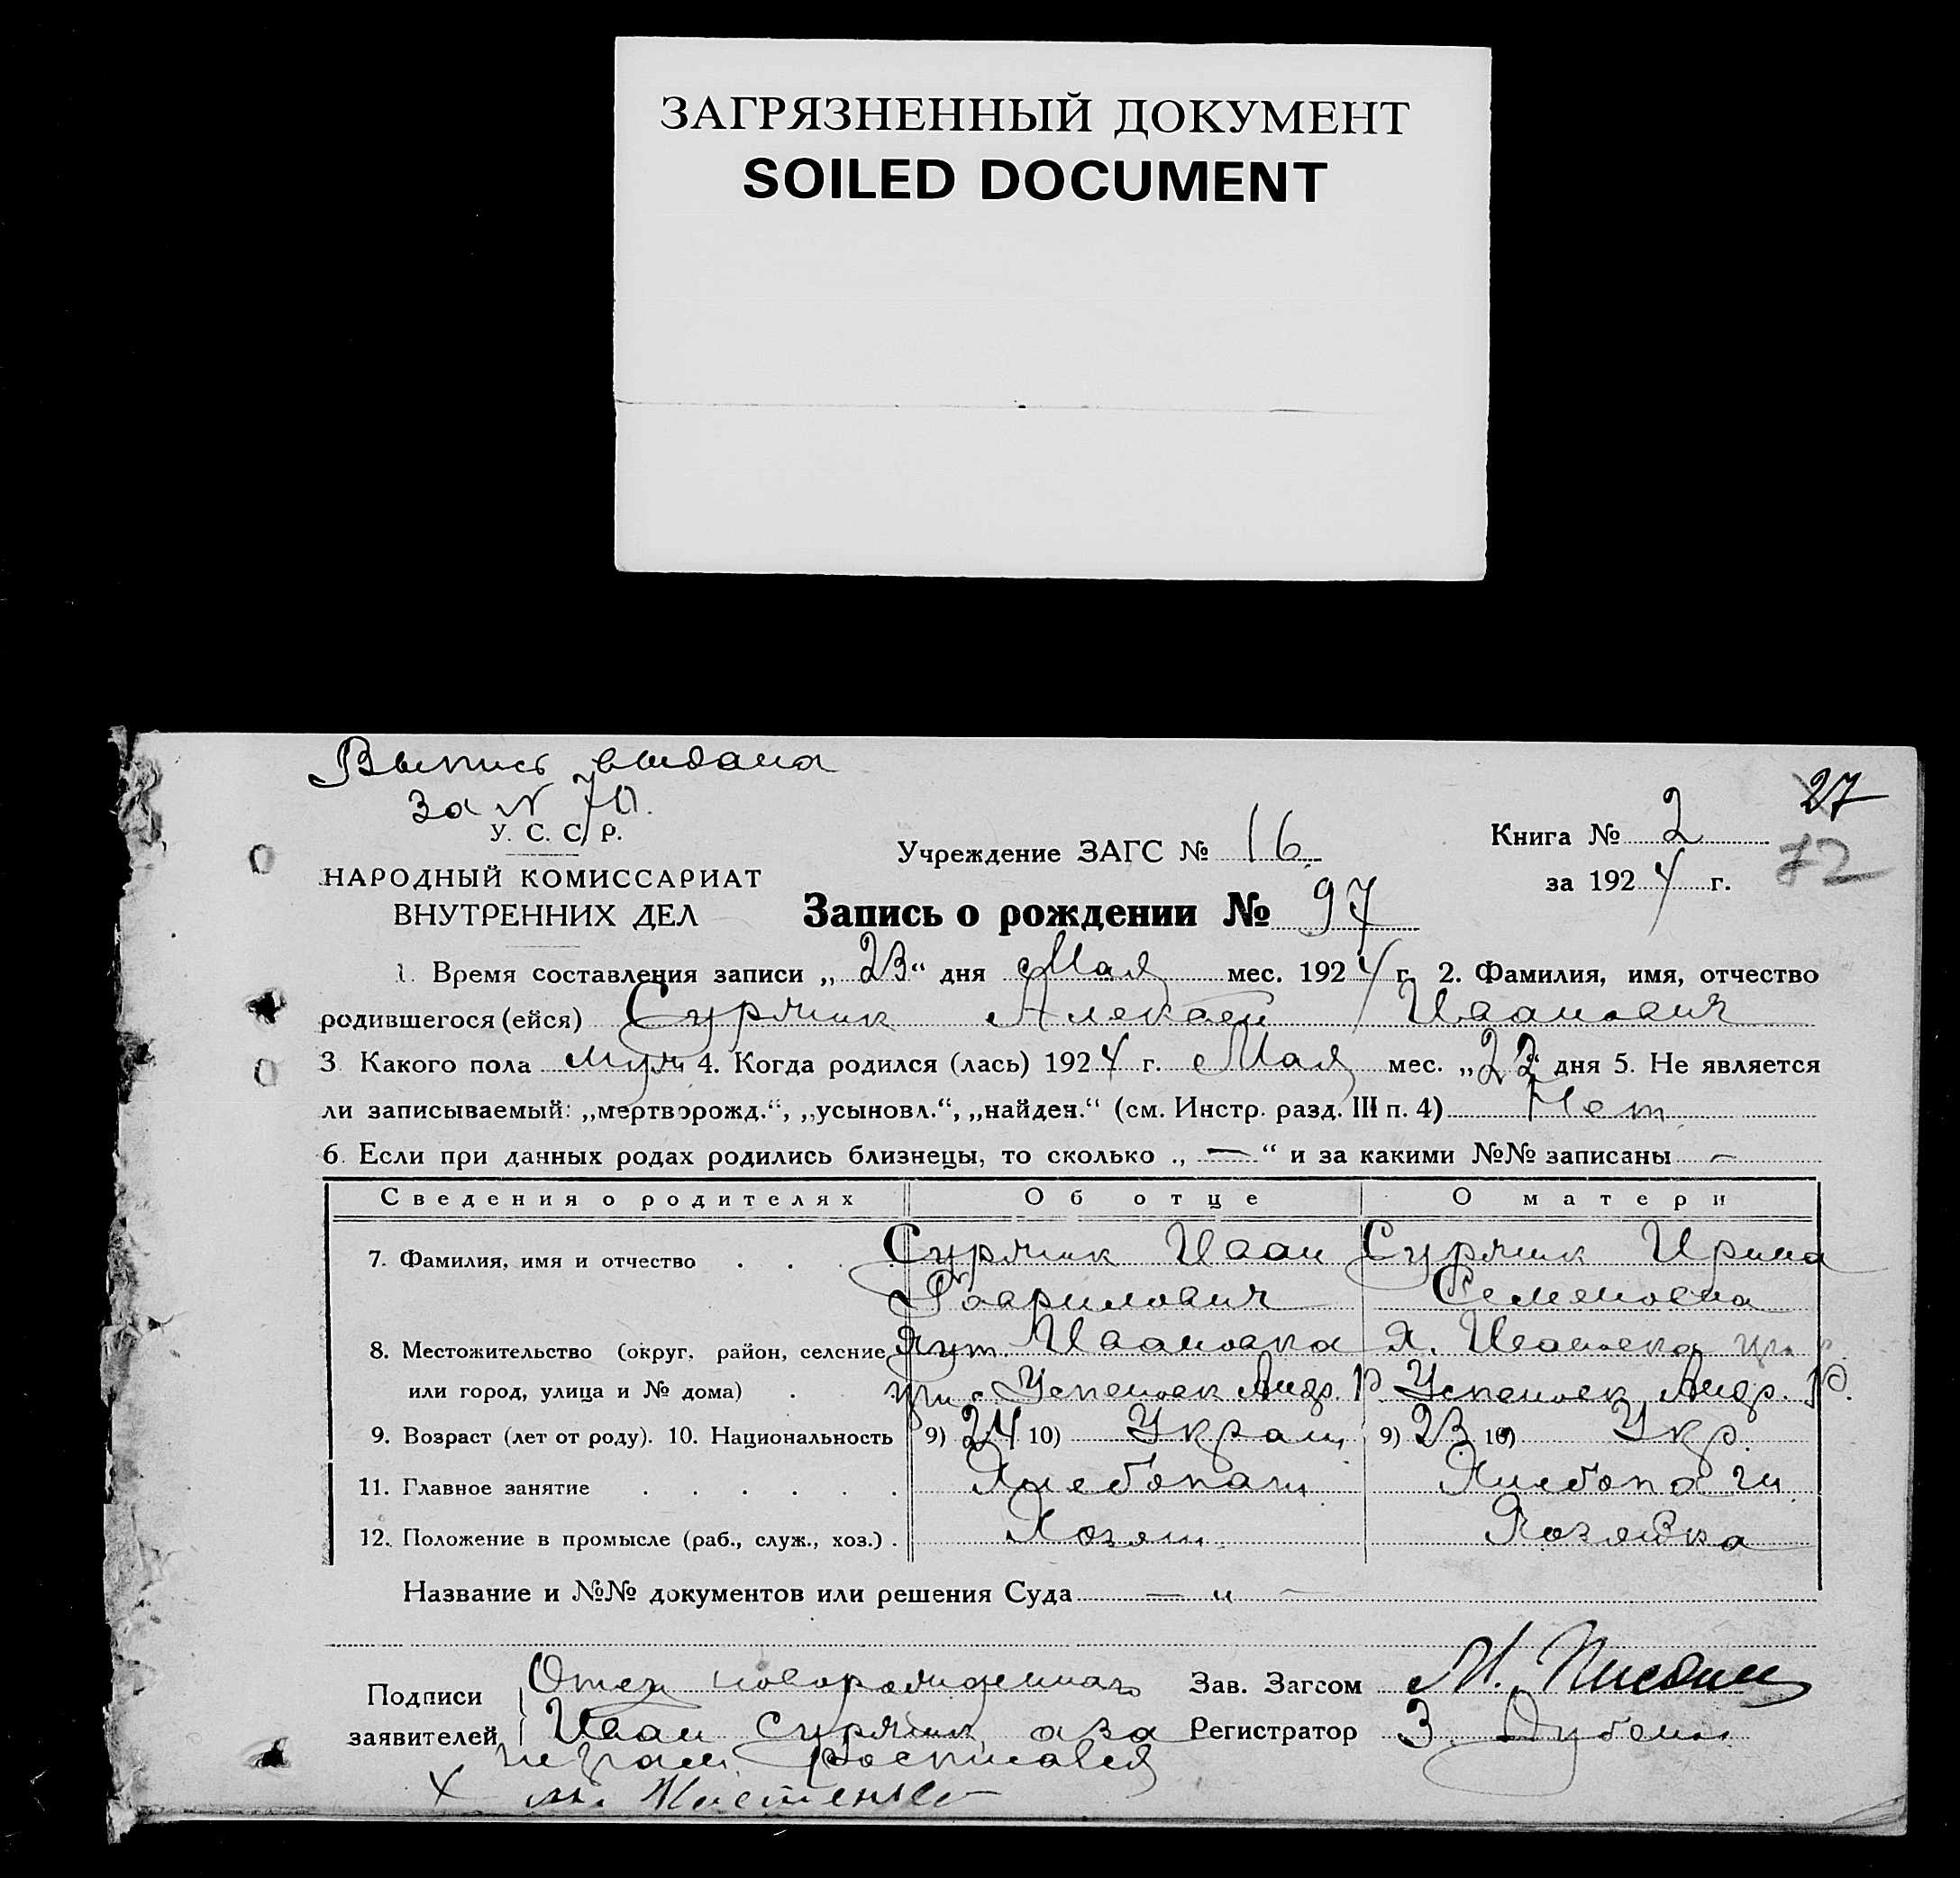 ЗАГРЯЗНЕННЫЙ ДОКУМЕНТ
SOILED DOCUMENT
Выпись выдана
за № 70.
27
У. С. С. Р.
Учреждение ЗАГС № 16.
Книга № 2
72
НАРОДНЫЙ КОМИССАРИАТ
ВНУТРЕННИХ ДЕЛ
за 1924 г.
Запись о рождении № 97
1. Время составления записи „23“ дня Мая мес. 1924 г. 2. Фамилия, имя, отчество
родившегося (ейся) Суржик Алексей Иванович
3. Какого пола муж 4. Когда родился (лась) 1924 г. Мая мес. „22“ дня 5. Не является
ли записываемый: „мертворожд.“, „усыновл.“, „найден.“ (см. Инстр. разд. III п. 4) Нет
6. Если при данных родах родились близнецы, то сколько „—“ и за какими №№ записаны —
Сведения о родителях Об отце О матери
7. Фамилия, имя и отчество Суржик Иван Суржик Ирина
Гаврилович Семеновна
8. Местожительство (округ, район, селение Хут. Ивановка Х. Ивановка
или город, улица и № дома) Успеновск Андр. Р. Успеновск Андр. Р.
9. Возраст (лет от роду). 10. Национальность 9) 24 10) Украин 9) 23 10) Укр.
11. Главное занятие Хлебопаш. Хлебопаш.
12. Положение в промысле (раб., служ., хоз.) Хозяин Хозяйка
Название и №№ документов или решения Суда — „ —
Подписи Отец новорожденнаго Зав. Загсом
заявителей Иван Суржик, а за Регистратор З.
неграм. росписался